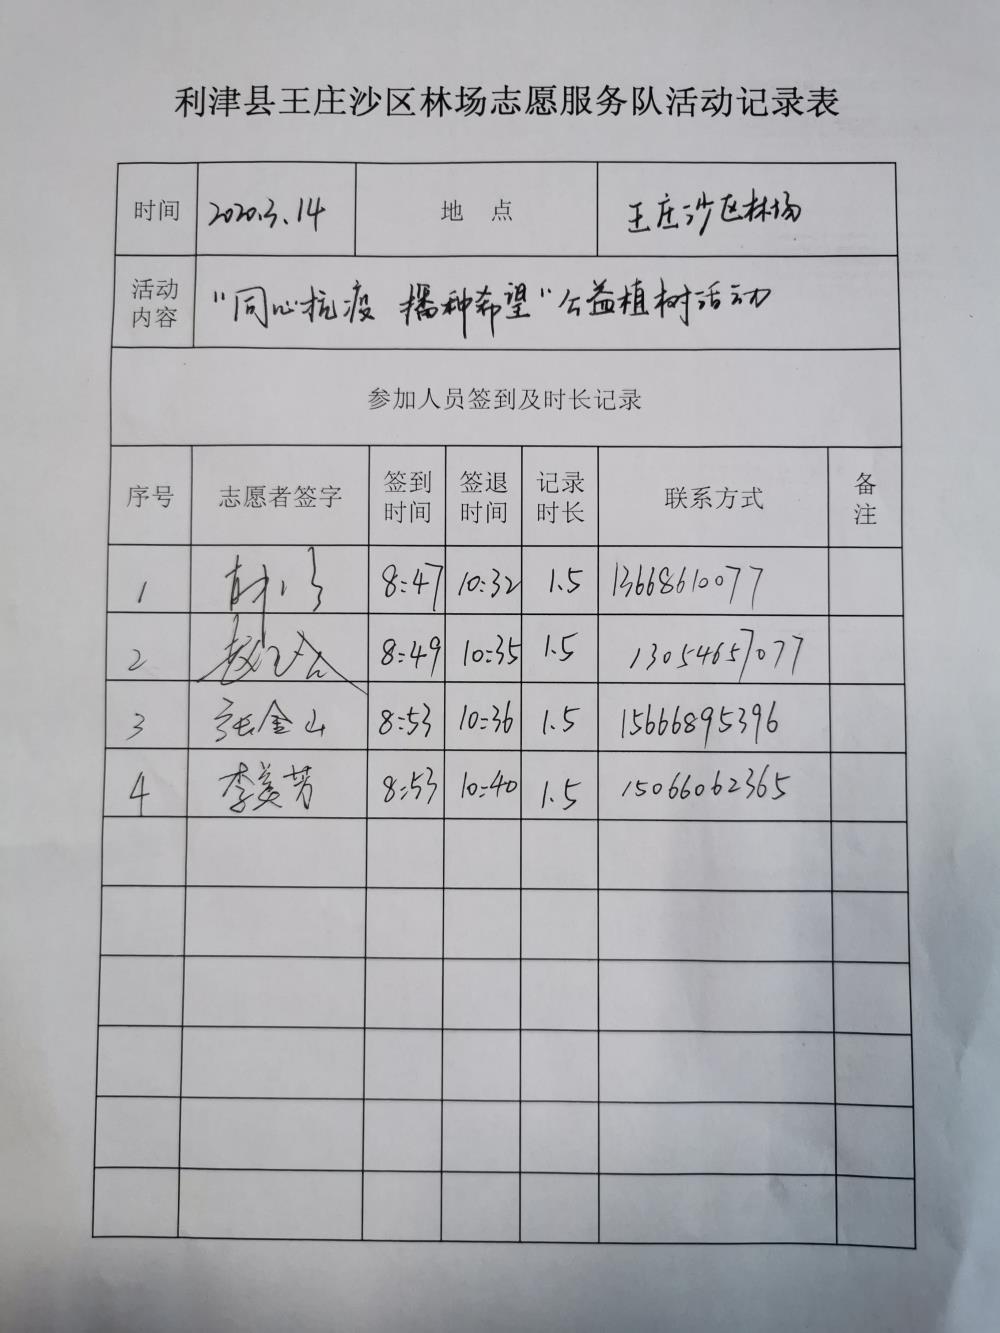 利津县王庄沙区林场志愿服务队活动记录表
时间 2020.3.14 地 点 王庄沙区林场
活动内容 "同心抗疫 播种希望"公益植树活动
参加人员签到及时长记录
序号 志愿者签字 签到时间 签退时间 记录时长 联系方式 备注
1 8:47 10:32 1.5 13668610077
2 8:49 10:35 1.5 13054657077
3 张金山 8:53 10:36 1.5 15666895396
4 李美芳 8:53 10:40 1.5 15066062365